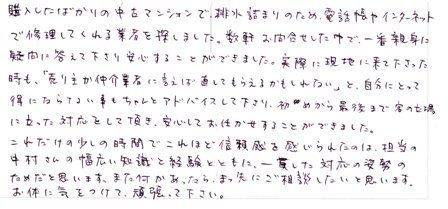 購入したばかりの中古マンションで、排水詰まりのため、電話帳やインターネット
で修理してくれる業者を探しました。数軒お問合せした中で、一番親身に
疑問に答えて下さり安心することができました。実際に現地に来て下さった
時も、「売り主か仲介業者に言えば直してもらえるかもしれない」と、自分にとって
得にならない事もちゃんとアドバイスして下さり、初めから最後まで客の立場
に立った対応をして頂き、安心しておまかせすることができました。
これだけの少しの時間でこれほど信頼感を感じられたのは、担当の
中村さんの幅広い知識と経験とともに、一貫した対応の姿勢の
ためだと思います。また何かあったら、まっ先にご相談したいと思います。
お体に気をつけて、頑張って下さい。